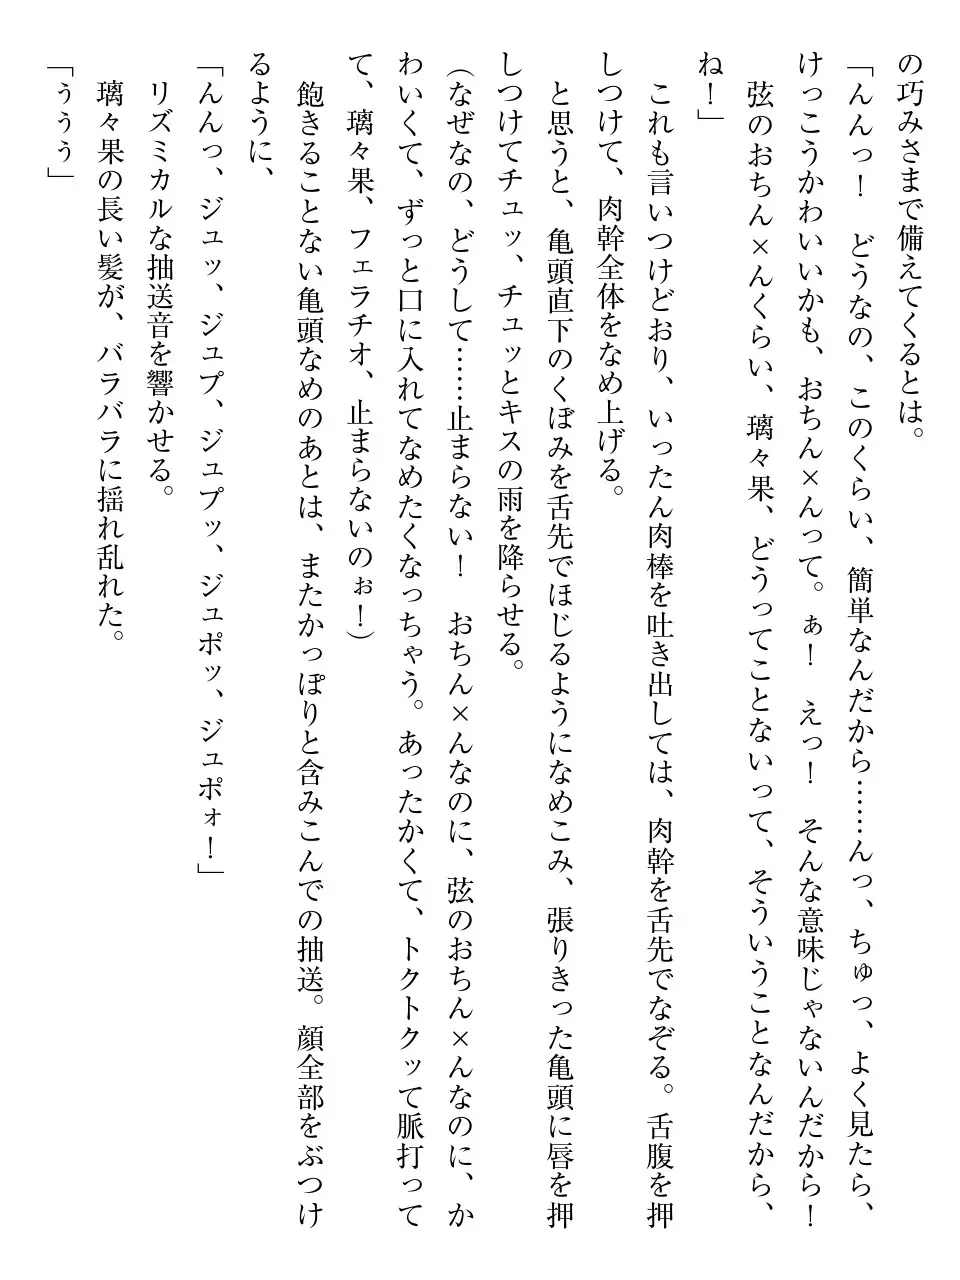 の巧みさまで備えてくるとは。
「んんっ！　どうなの、このくらい、簡単なんだから……んっ、ちゅっ、よく見たら、
けっこうかわいいかも、おちん×んって。ぁ！　えっ！　そんな意味じゃないんだから！
弦のおちん×んくらい、璃々果、どうってことないって、そういうことなんだから、
ね！」
　これも言いつけどおり、いったん肉棒を吐き出しては、肉幹を舌先でなぞる。舌腹を押
しつけて、肉幹全体をなめ上げる。
　と思うと、亀頭直下のくぼみを舌先でほじるようになめこみ、張りきった亀頭に唇を押
しつけてチュッ、チュッとキスの雨を降らせる。
（なぜなの、どうして……止まらない！　おちん×んなのに、弦のおちん×んなのに、か
わいくて、ずっと口に入れてなめたくなっちゃう。あったかくて、トクトクッて脈打って
て、璃々果、フェラチオ、止まらないのぉ！）
　飽きることない亀頭なめのあとは、またかっぽりと含みこんでの抽送。顔全部をぶつけ
るように、
「んんっ、ジュッ、ジュプ、ジュプッ、ジュポッ、ジュポォ！」
　リズミカルな抽送音を響かせる。
　璃々果の長い髪が、バラバラに揺れ乱れた。
「ぅぅぅ」